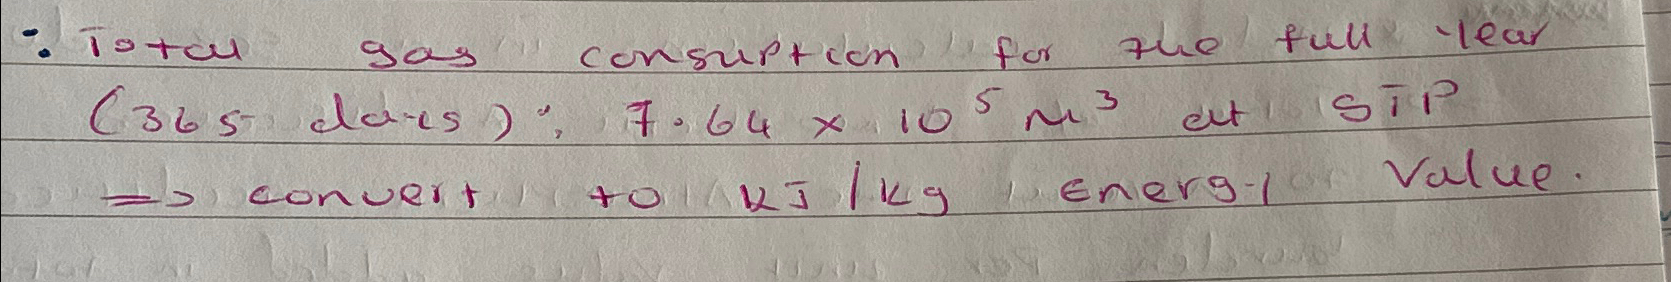 : Total gas consuption for the full year
(365 days): 7.64 × 10⁵ m³ at STP
=> convert to kJ/kg energy value.